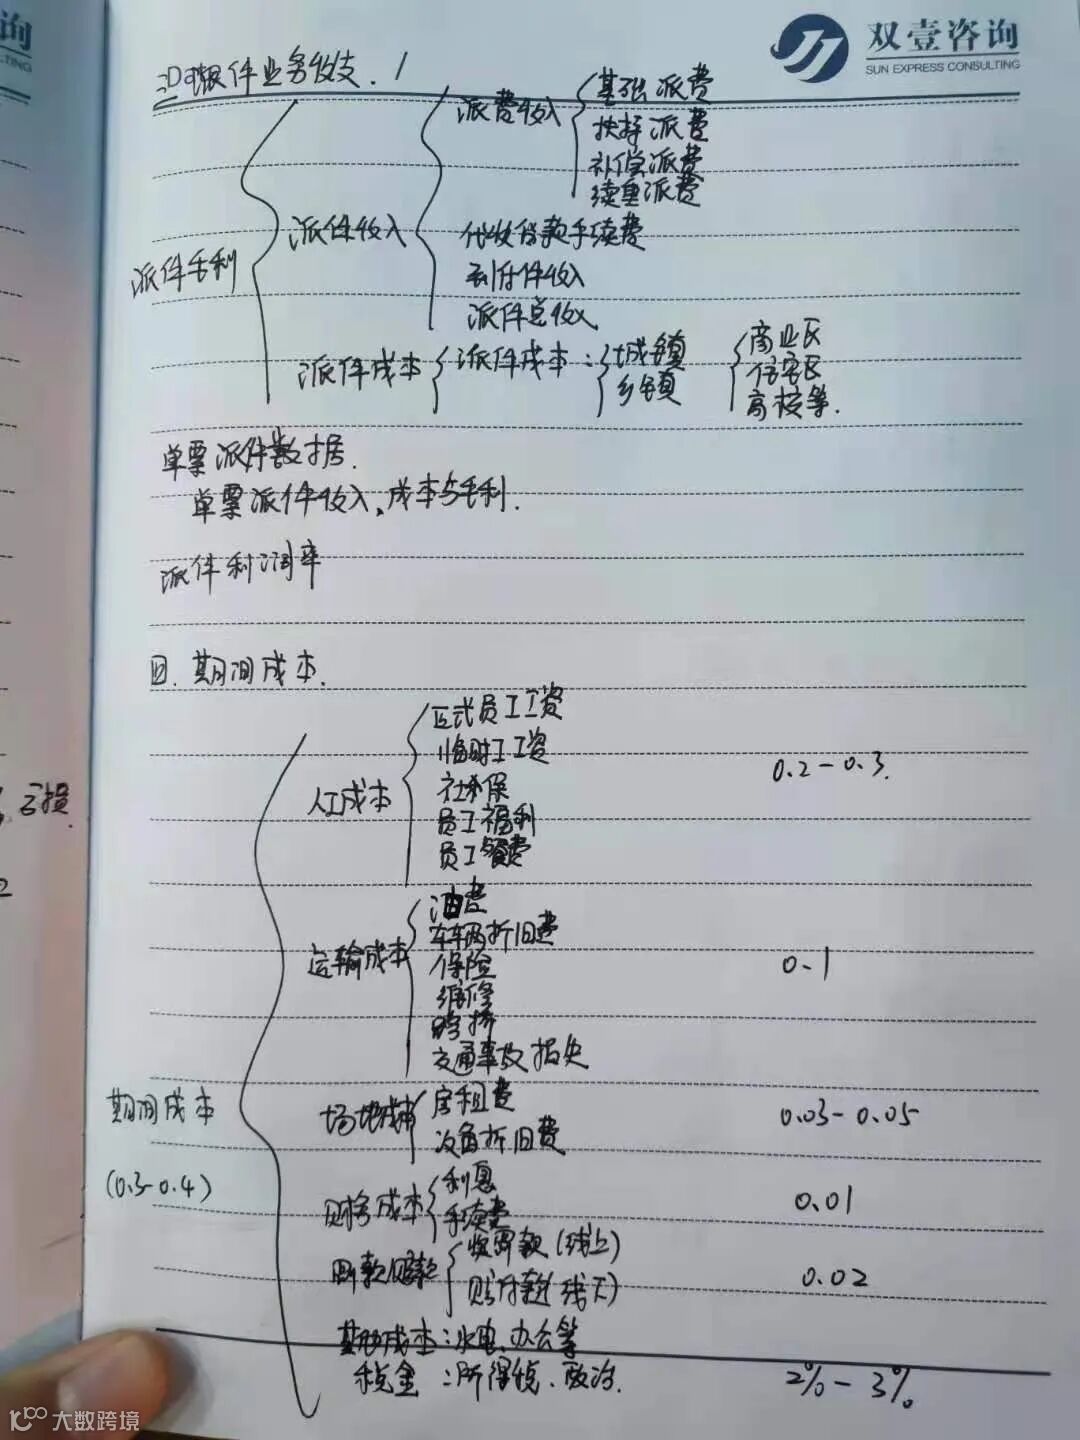 询
TING
双壹咨询
SUN EXPRESS CONSULTING
三、派件业务收支. 1
派件毛利
派件收入
派费收入
基础派费
扶持派费
补偿派费
续重派费
代收货款手续费
到付件收入
派件总收入
派件成本
派件成本:
城镇
乡镇
商业区
住宅区
高校等.
单票派件数据.
单票派件收入,成本与毛利.
派件利润率
四. 期间成本.
期间成本
(0.3-0.4)
人工成本
正式员工工资
临时工工资
社保
员工福利
员工餐费
0.2-0.3.
运输成本
油费
车辆折旧费
保险
维修
路桥
交通事故损失
0.1
场地成本
房租费
设备折旧费
0.03-0.05
财务成本
利息
手续费
0.01
罚款赔款
收罚款(线上)
赔付款(线下)
0.02
其他成本:水电、办公等
税金:所得税、
2%-3%
亏损
大数跨境